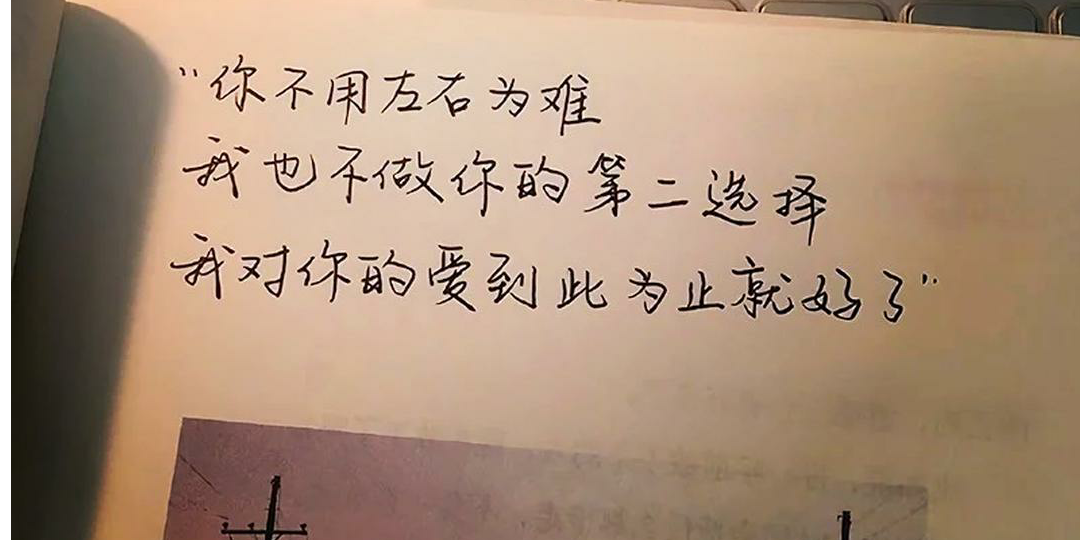 “你不用左右为难
我也不做你的第二选择
我对你的爱到此为止就好了”